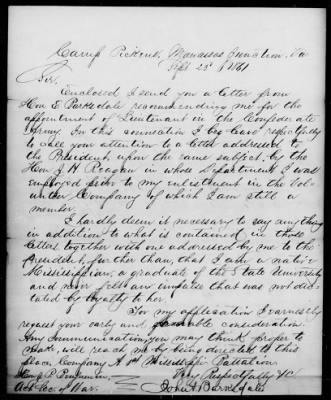 Camp Pickens, Manassas Junction, Va
Sept 23d 1861
Sir,
Enclosed I send you a letter from
Hon E. Barksdale recommending me for the
appointment of Lieutenant in the Confederate
Army. In this connection I beg leave respectfully
to call your attention to a letter addressed to
the President, upon the same subject, by the
Hon J H Reagan in whose Department I was
employed prior to my enlistment in the Vol-
unteer Company of which I am still a
member.
I hardly deem it necessary to say anything
in addition to what is contained in those
letters together with one addressed by me to the
President, further than, that I am a native
Mississippian, a graduate of the State University
and never felt any impulse that was not dic-
tated by loyalty to her.
For my application I earnestly
request your early and favorable consideration.
Any communication, you may think proper to
make, will reach me by being directed to this
place, Company A 1st Mississippi Battalion
Hon J. P. Benjamin Very Respectfully &c
Act Sec of War. John A Barksdale